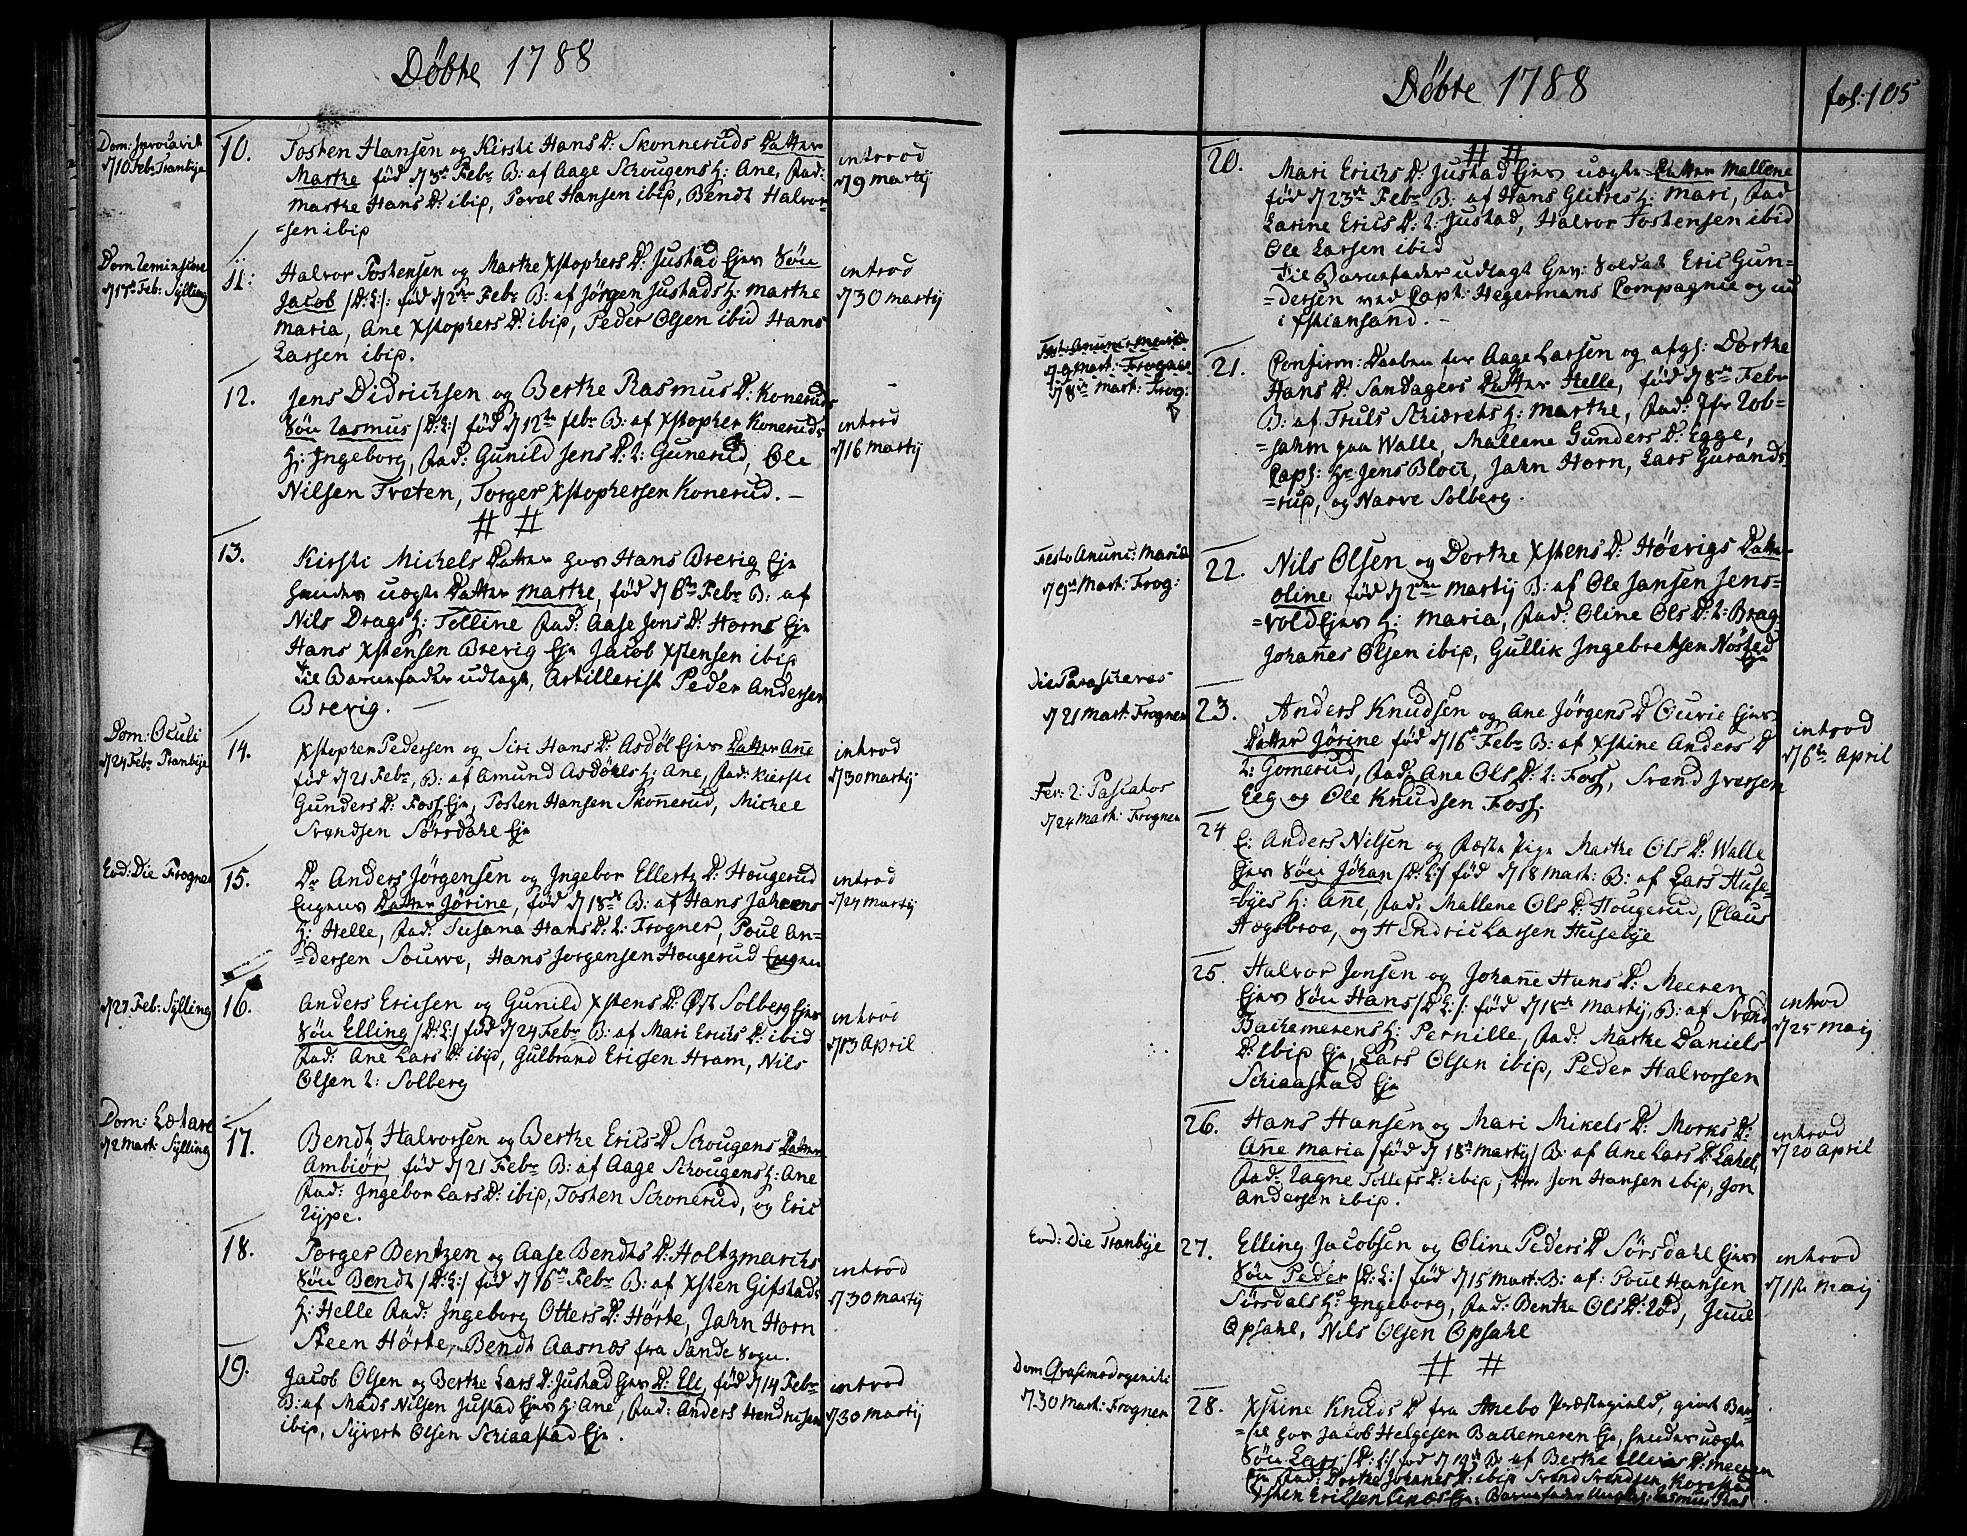 Døbte 1788
Dom: Invocavit
d 10 Feb: Tranbye
10. Tosten Hansen og Kirsti Hans D: Skonneruds Datter
Marthe født d 3de Febr B: af Aage Schougens H: Ane, Fad:
Marthe Hans D: ibid, Povel Hansen ibid, Bendt Halvor=
=sen ibid
introd
d 9 Martij
Dom Reminiscere
d 17 Feb: Sylling
11: Halvor Tostensen og Marthe Xstophers D: Justad Ejes Søn
Jacob /D:L:/: fød d 2den Febr B: af Jørgen Justads H: Marthe
Maria, Ane Xstophers D: ibid, Peder Olsen ibid Hans
Larsen ibid.
introd
d 30 Martij
12. Jens Didrichsen og Berthe Rasmus D: Koneruds
Søn Rasmus /D:L:/ fød d 12te Febr B: af Xstopher Koneruds
H: Ingeborg, Fad: Gunild Jens D: 2: Gunerud, Ole
Nilsen Træten, Torger Xstophersen Konerud. —
introd
d 16 Martij
# #
13. Kirsti Michels Datter hos Hans Brevig Eje
hendes uægte Datter Marthe, fød d 6te Febr B: af
Nils Drags H: Tolline Fad: Aase Jens D: Horns Eje
Hans Xstensen Brevig Eje Jacob Xstensen ibid
til Barnefader udlagt, Artillerist Peder Andersen
Brevig. —
Dom: Oculi
d 24 Febr Tranbye
14. Xstopher Pedersen og Siri Hans D: Asdøl Ejes Datter Anne
fød d 21 Febr, B: af Amund Asdøhls H: Ane, Fad: Kirsti
Gunders D: Foss Eje, Tosten Hansen Skonnerud, Michel
Svendsen Sørsdahl Eje
introd
d 30 Martij
Eod: Die Frogner
15. Dr Anders Jørgensen og Ingebor Ellertz D: Hougerud
Engens Datter Jørine, fød d 18de B: af Hans Jahrens
H: Helle, Fad: Susana Hans D: 2: Frogner, Poul An=
=dersen Sourve, Hans Jørgensen Hougerud Engen
introd
d 24 Martij
d 27 Feb: Sylling
16. Anders Ericsen og Gunild Xstens D: Øst Solberg Ejes
Søn Elling /D:L:/ fød d 24 Febr B: af Mari Erichs D: ibid
Fad: Ane Lars D: ibid, Gulbrand Ericsen Hvam, Nils
Olsen 2: Solberg
introd
d 13 April
Dom: Lætare
d 2 Mart: Sylling
17. Bendt Halvorsen og Berthe Erics D Schougens Datter
Ambiør, fød d 21 Febr B: af Aage Schougens H: Ane
Fad: Ingebor Lars D: ibid, Tosten Schonerud, og Eric
Rype.
18. Torger Bentzen og Aase Bendts D: Holtzmarchs
Søn Bendt /D:L:/ fød d 16de Febr B: af Xsten Gifstads
H: Helle Fad: Ingeborg Otters D: Hørte, Jahn Horn
Steen Hørte, Bendt Aasnæs fra Sande Sogn.
introd
d 30 Martij
19. Jacob Olsen og Berthe Lars D: Justad Ejes D: Eli, fød d 14 Febr
B: af Mads Nilsen Justad Ejes H: Ane, Fad: Anders Hendrichsen
ibid, Syvert Olsen Schiaastad Eje.
introd
d 30 Martij
Døbte 1788
fol: 105
# #
20. Mari Erichs D: Justad Ejes uægte Datter Mallene
fød d 23de Febr B: af Hans Glitres H: Mari, Fad
Karine Erics D: 2: Justad, Halvor Tostensen ibid
Ole Larsen ibid
til Barnefader udlagt Gev: Soldat Eric Gun=
=dersen ved Capt: Hegermans Compagnie og nu
i Xstiansand. —
Fest: Anunc: Mariæ
d 9 Mart: Frogner
d 8de Mart: Frog:
21. Confirm: Daaben for Aage Larsen og afg: Dorthe
Hans D: Sandagers Datter Helle, fød d 8de Febr
B: af Truls Schiærets H: Marthe, Fad: Jfr Rob=
=sahm paa Walle, Mallene Gunders D: Egge,
Capl: Hr Jens Block, Jahn Horn, Lars Gurands=
=rup, og Narve Solberg.
Festo Anunc: Mariæ
d 9de Mart: Frog:
22. Nils Olsen og Dorthe Xstens D: Høevigs Datter
Oline, fød d 2den Martij B: af Ole Jansen Jens=
=vold Ejes H: Maria, Fad: Oline Ols D: 2: Brag:
Johannes Olsen ibid, Gullik Ingebretsen Nøsted
Eje
Die Parasceves
d 21 Mart: Frogner
23. Anders Knudsen og Ane Jørgens D Ourie Ejes
Datter Jørine fød d 16de Febr B: af Xstine Anders D
2: Gomerud, Fad: Ane Ols D: 2: Foss, Svend Iversen
Elg og Ole Knudsen Foss.
introd
d 6te April
Fer: 2: Pascatos
d 24 Mart: Frogner
24 C: Anders Nilsen og Fæste Pige Marthe Ols D: Walle
Ejes Søn Johan /D:L:/ fød d 18 Mart: B: af Lars Huse=
=byes H: Anne, Fad: Mallene Ols D: Hougerud, Claus
Hægsbroe, og Hendric Larsen Husebye
25. Halvor Jonsen og Johanne Hans D: Meeren
Ejes Søn Hans /D:L:/: fød d 18de Martij, B: af Svend
Bachemerens H: Pernille, Fad: Marthe Daniels
D: ibid Eje, Lars Olsen ibid, Peder Halvorsen
Schiaastad Eje
introd
d 25 Maij
26. Hans Hansen og Mari Mikels D: Morks D:
Anne Maria /fød d 18de Martij/ B: af Ane Lars D: Lahel,
Fad: Ragne Tollefs D: ibid, Jon Hansen ibid, Jon
Andersen ibid.
introd
d 20 April
Eod: Die Tranbye
27. Elling Jacobsen og Oline Peders D Sørsdahl Ejes
Søn Peder /D:L:/ fød d 15 Mart: B: af: Poul Hansen
Sørsdals H: Ingeborg, Fad: Benthe Ols D: Rød, Juul
Opsahl, Nils Olsen Opsahl
introd
d 1ste Maij
# #
Dom Qvasimodogeniti
d 30 Mart: Frogner
28. Xstine Knuds D fra Anebo Præstegield, giort Bar=
=sel hos Jacob Helgesen Bachemeren Eje, hendes uægte
Søn Lars /D:L:/ fød d 19de B: af Berthe Ellevs D: Meeren
Eje Fad: Dorthe Johanes D: ibid Svend Svendsen Korestad
Xsten Erichsen Eje: Barnefader Rasmus